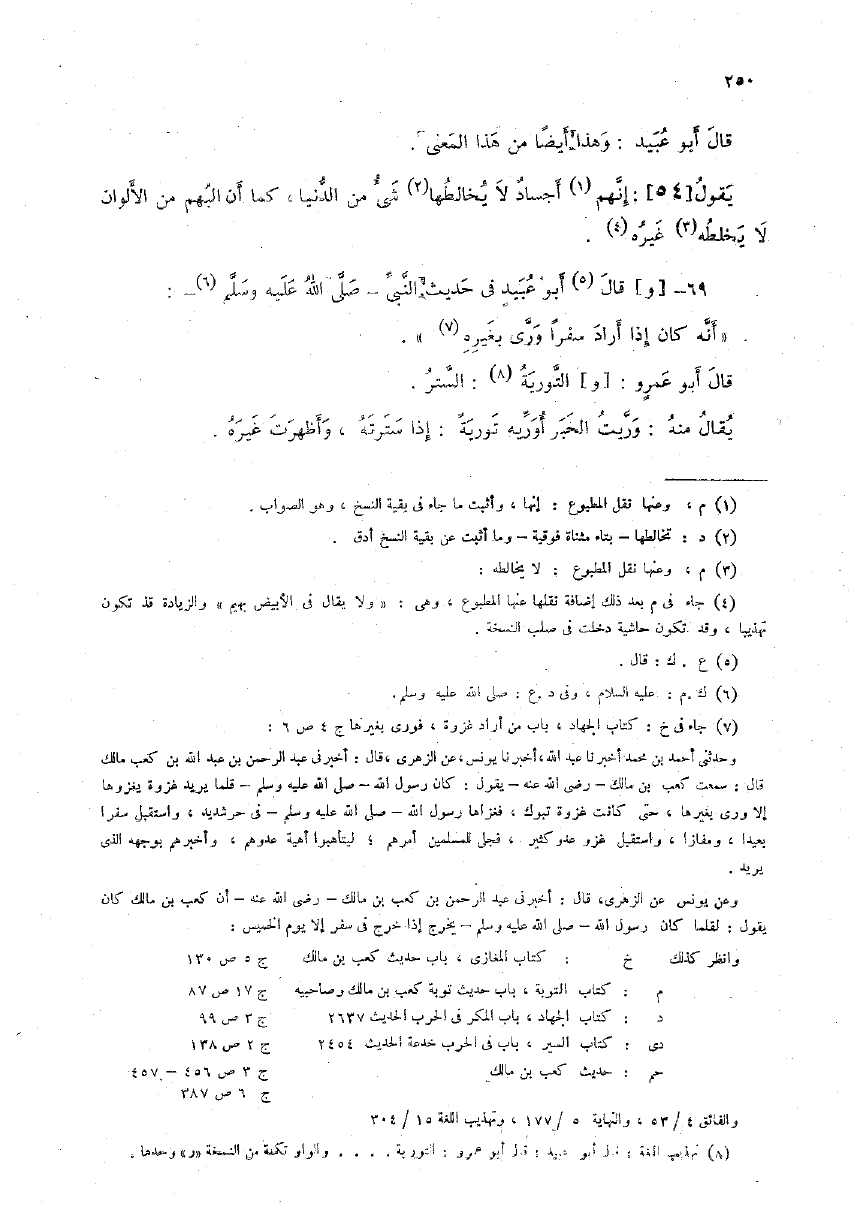 ٢٥٠
قالَ أَبو عُبَيد : وَهذا أَيضًا من هَذا المَعنى .
يَقولُ [٥٤] : إِنَّهم (١) أَجسادٌ لاَ يُخالطُها (٢) شَىءٌ من الدُّنيا ، كما أَن البُهم من الأَلوان
لَا يَخلطُه (٣) غَيرُه (٤) .
٦٩ـ [و] قالَ (٥) أَبو عُبَيدٍ فى حَديث النَّبىِّ ـ صَلَّى اللهُ عَلَيه وسَلَّم (٦) ـ :
« أَنَّه كان إِذا أَرادَ سفراً وَرَّى بغَيرِه (٧) » .
قالَ أَبو عَمرٍو : [و] التَّوريَةُ (٨) : السَّترُ .
يُقالُ منهُ : وَرَّيتُ الخَبَر أُوَرِّيه تَوريَةً : إِذا سَتَرتَهُ ، وَأَظهَرتَ غَيرَهُ .
(١) م ، وعنها نقل المطبوع : إنها ، وأثبت ما جاء فى بقية النسخ ، وهو الصواب .
(٢) د : تخالطها – بتاء مثناة فوقية – وما أثبت عن بقية النسخ أدق .
(٣) م ، وعنها نقل المطبوع : لا يخالطه :
(٤) جاء فى م بعد ذلك إضافة نقلها عنها المطبوع ، وهى : « ولا يقال فى الأبيض بهيم » والزيادة قد تكون
تهذيبا ، وقد تكون حاشية دخلت فى صلب النسخة .
(٥) ع . ك : قال .
(٦) ك . م : عليه السلام ، وفى د . ع : صلى الله عليه وسلم.
(٧) جاء فى خ : كتاب الجهاد ، باب من أراد غزوة ، فورى بغيرها ج ٤ ص ٦ :
وحدثنى أحمد بن محمد أخبرنا عبد الله ، أخبرنا يونس ، عن الزهرى ، قال : أخبرنى عبد الرحمن بن عبد الله بن كعب بن مالك
قال : سمعت كعب بن مالك – رضى الله عنه – يقول : كان رسول الله – صلى الله عليه وسلم – قلما يريد غزوة يغزوها
إلا ورى بغيرها ، حتى كانت غزوة تبوك ، فغزاها رسول الله – صلى الله عليه وسلم – فى حر شديد ، واستقبل سفرا
بعيدا ، ومفازا ، واستقبل غزو عدو كثير ، فجلى للمسلمين أمرهم ؛ ليتأهبوا أهبة عدوهم ، وأخبرهم بوجهه الذى
يريد .
وعن يونس عن الزهرى ، قال : أخبرنى عبد الرحمن بن كعب بن مالك – رضى الله عنه – أن كعب بن مالك كان
يقول : لقلما كان رسول الله – صلى الله عليه وسلم – يخرج إذا خرج فى سفر إلا يوم الخميس :
وانظر كذلك خ : كتاب المغازى ، باب حديث كعب بن مالك ج ٥ ص ١٣٠
م : كتاب التوبة ، باب حديث توبة كعب بن مالك وصاحبيه ج ١٧ ص ٨٧
د : كتاب الجهاد ، باب المكر فى الحرب الحديث ٢٦٣٧ ج ٣ ص ٩٩
دى : كتاب السير ، باب فى الحرب خدعة الحديث ٢٤٥٤ ج ٢ ص ١٣٨
حم : حديث كعب بن مالك ج ٣ ص ٤٥٦ – ٤٥٧
ج ٦ ص ٣٨٧
والفائق ٤ / ٥٣ ، والنهاية ٥ / ١٧٧ ، وتهذيب اللغة ١٥ / ٣٠٤
(٨) تهذيب اللغة : قال أبو عبيد : قال أبو عمرو : التورية . . . . والواو تكملة من النسخة «ر» وحدها .